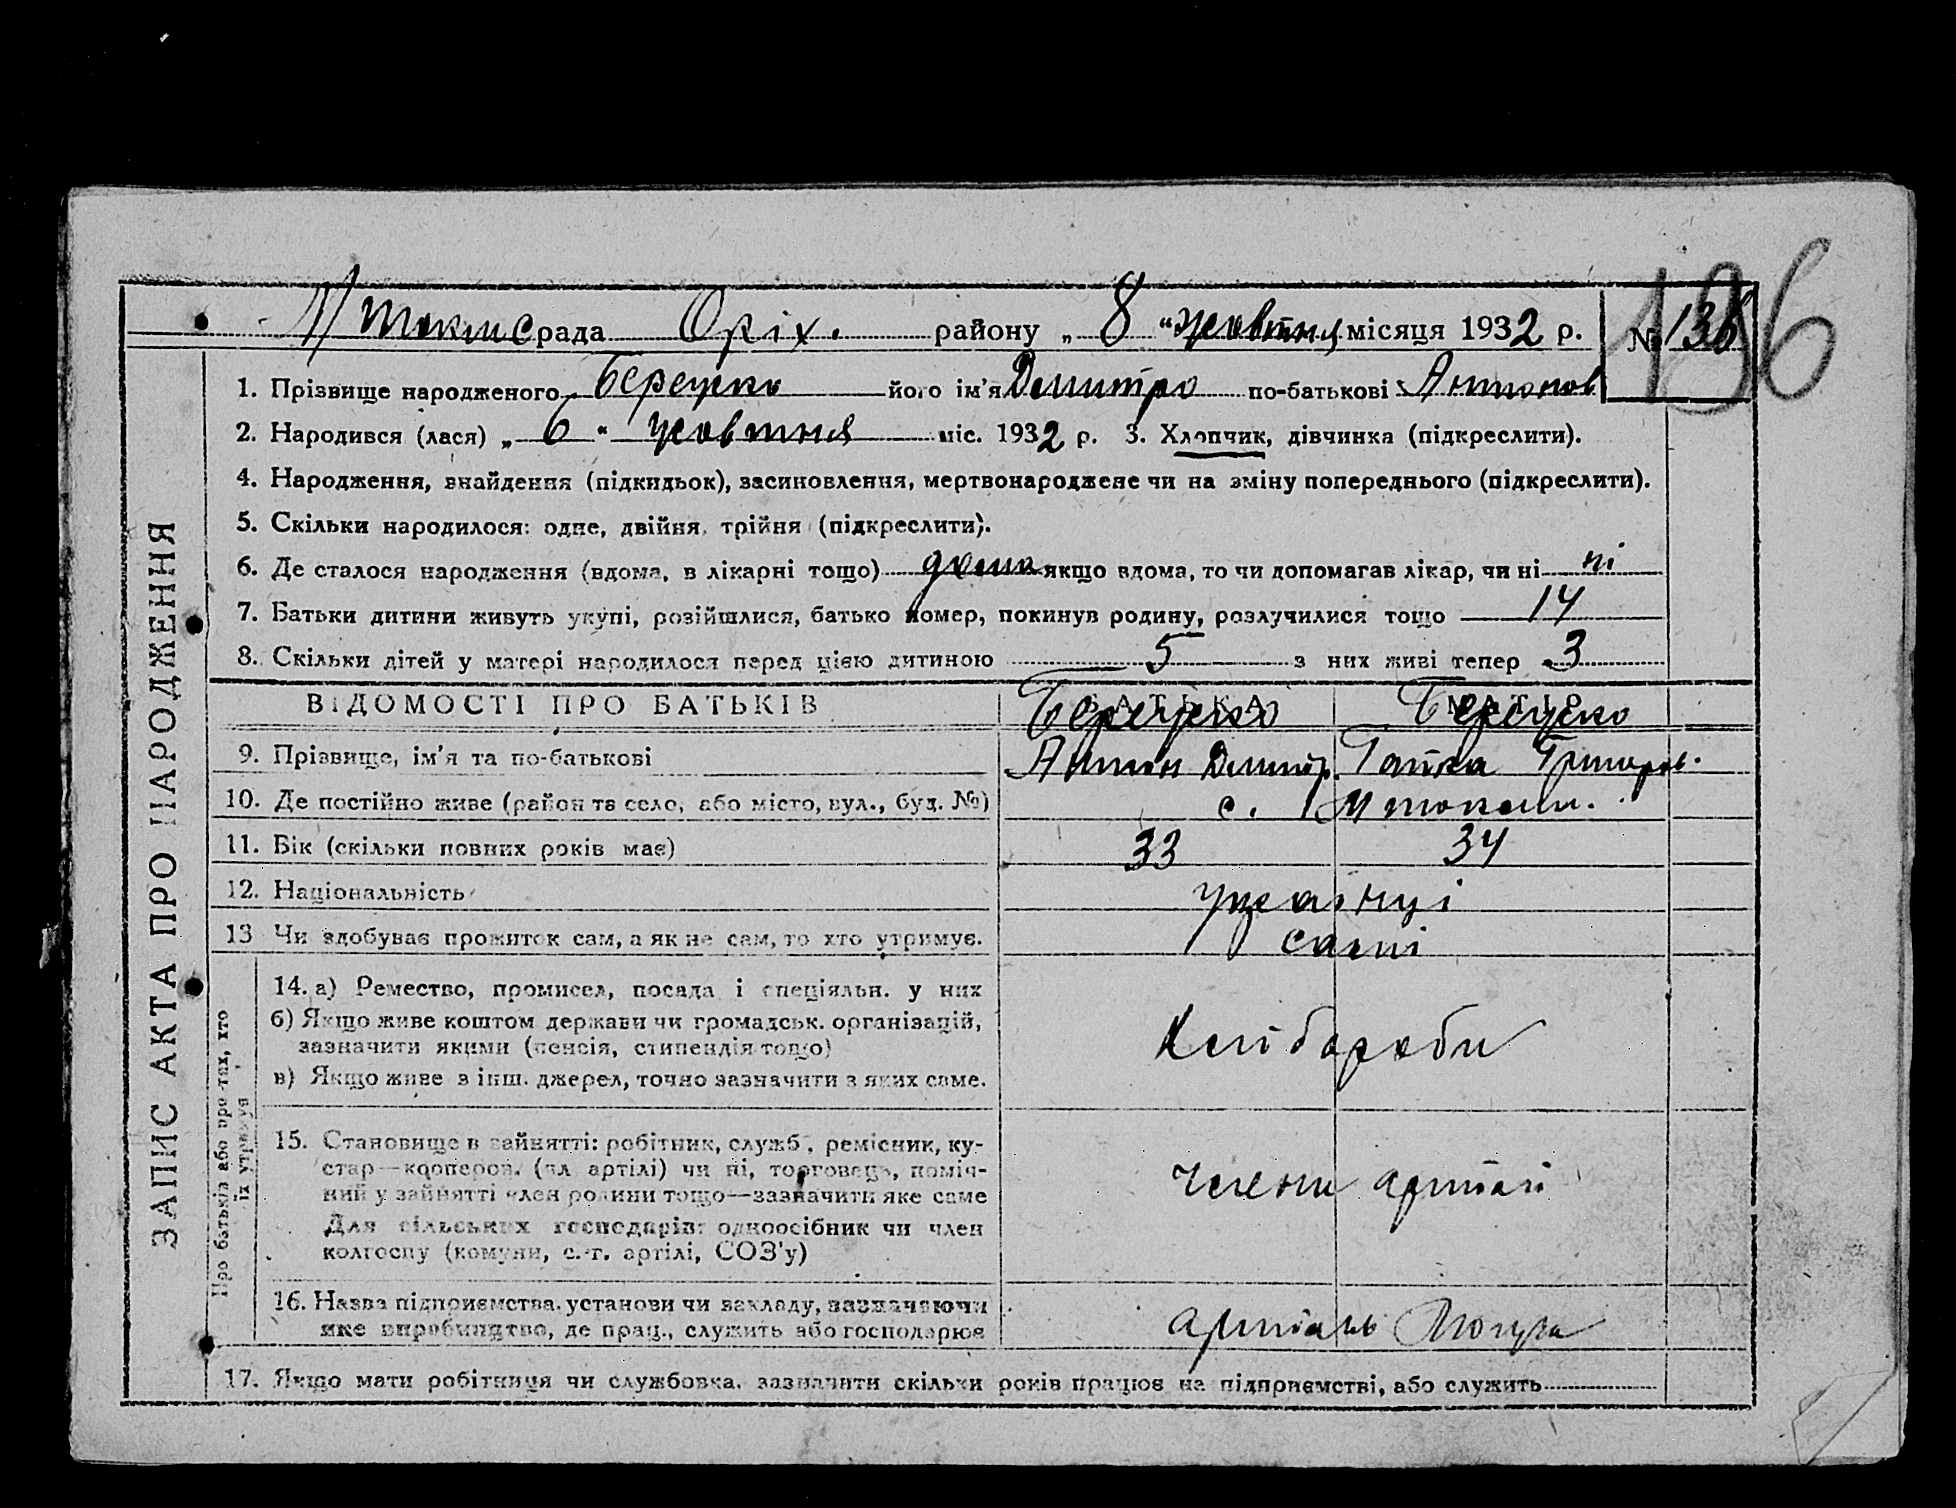 М токмс рада Оріх. району „ 8 “ жовтня місяця 1932 р. № 138
136
1. Прізвище народженого Берецко його ім'я Дмитро по-батькові Антонов
2. Народився (лася) „ 6 “ жовтня міс. 1932 р. 3. Хлопчик, дівчинка (підкреслити).
4. Народження, знайдення (підкидьок), засиновлення, мертвонароджене чи на зміну попереднього (підкреслити).
5. Скільки народилося: одне, двійня, трійня (підкреслити).
6. Де сталося народження (вдома, в лікарні тощо) дома якщо вдома, то чи допомагав лікар, чи ні ні
7. Батьки дитини живуть укупі, розійшлися, батько помер, покинув родину, розлучилися тощо 14
8. Скільки дітей у матері народилося перед цією дитиною 5 з них живі тепер 3
ВІДОМОСТІ ПРО БАТЬКІВ БАТЬКА МАТІР
Берецко Берецко
9. Прізвище, ім'я та по-батькові Антон Дмитр. Гапка Григоров.
10. Де постійно живе (район та село, або місто, вул., буд. №) с. М токмач.
11. Вік (скільки повних років має) 33 34
12. Національність українці
13 Чи здобуває прожиток сам, а як не сам, то хто утримує. самі
14. а) Ремество, промисел, посада і спеціяльн. у них
б) Якщо живе коштом держави чи громадськ. організацій,
зазначити якими (пенсія, стипендія тощо)
в) Якщо живе з інш. джерел, точно зазначити з яких саме.
Хлібороби
15. Становище в зайнятті: робітник, служб., ремісник, ку-
стар—кооперов. (чл. артілі) чи ні, торговець, поміч-
ний у зайнятті член родини тощо—зазначити яке саме
Для сільських господарів: одноосібник чи член
колгоспу (комуни, с.-г. артілі, СОЗ'у)
члени артілі
16. Назва підприємства, установи чи закладу, зазначаючи
яке виробництво, де прац., служить або господарює
артіль
17. Якщо мати робітниця чи службовка, зазначити скільки років працює на підприємстві, або служить
ЗАПИС АКТА ПРО НАРОДЖЕННЯ
Про батьків або про тих, хто
їх утримує